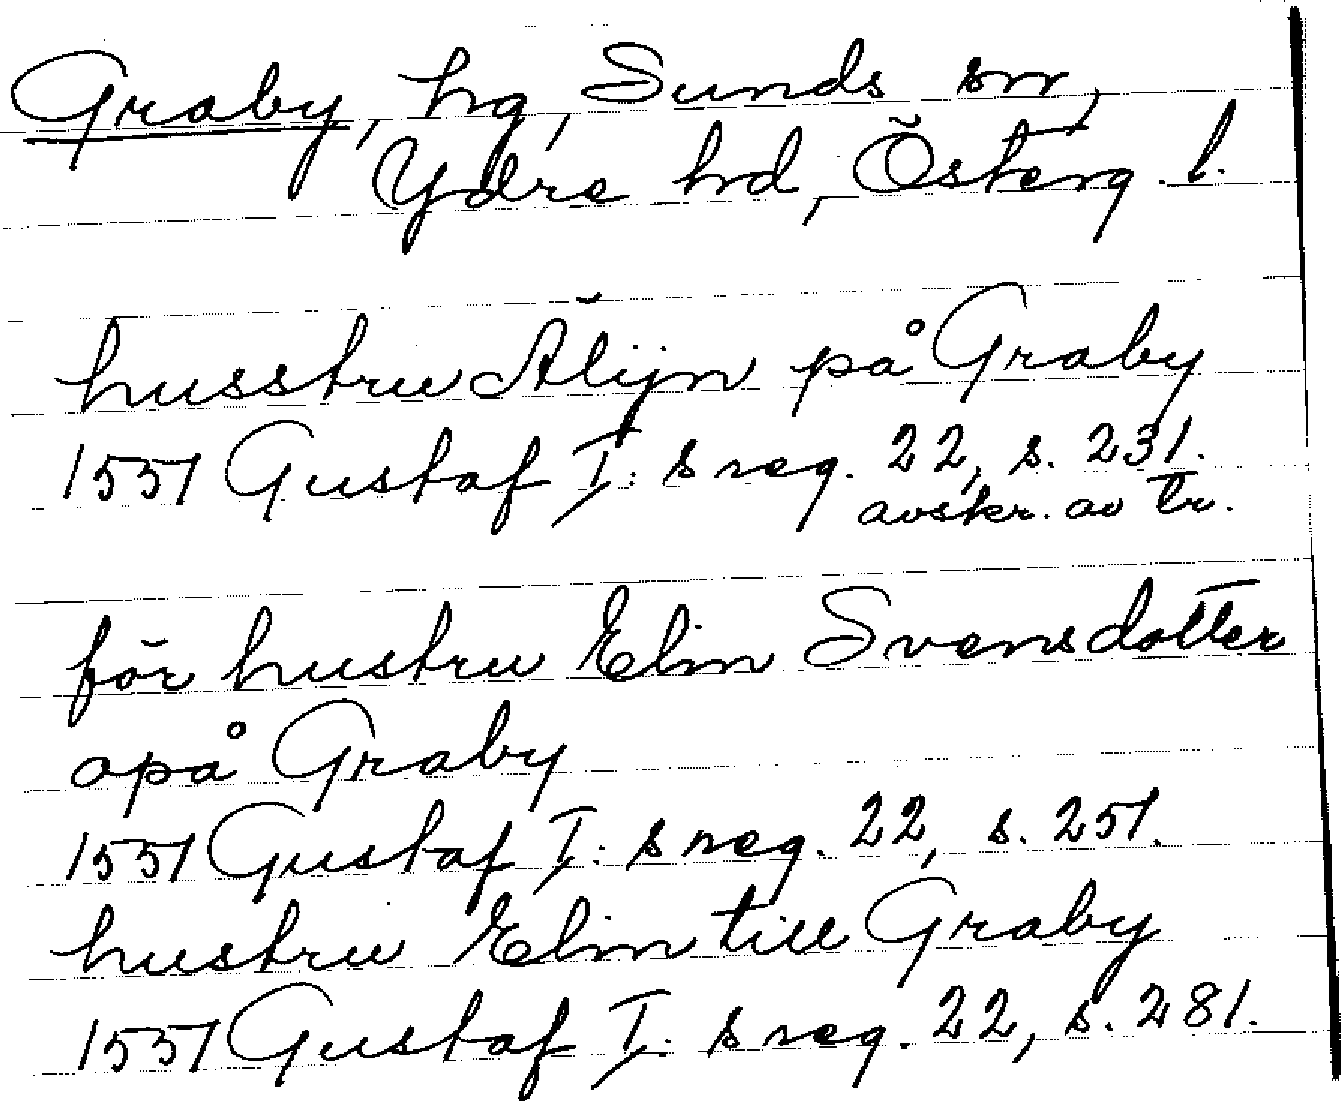 Graby, hg, Sunds sn,
Ydre hd, Österg. l.
husstru Älijn på Graby
1551 Gustaf I:s reg. 22, s. 231.
avskr. av tr.
för hustru Elin Svensdotter
opå Graby
1551 Gustaf I:s reg. 22, s. 251.
hustru Elin till Graby
1551 Gustaf I:s reg. 22, s. 281.